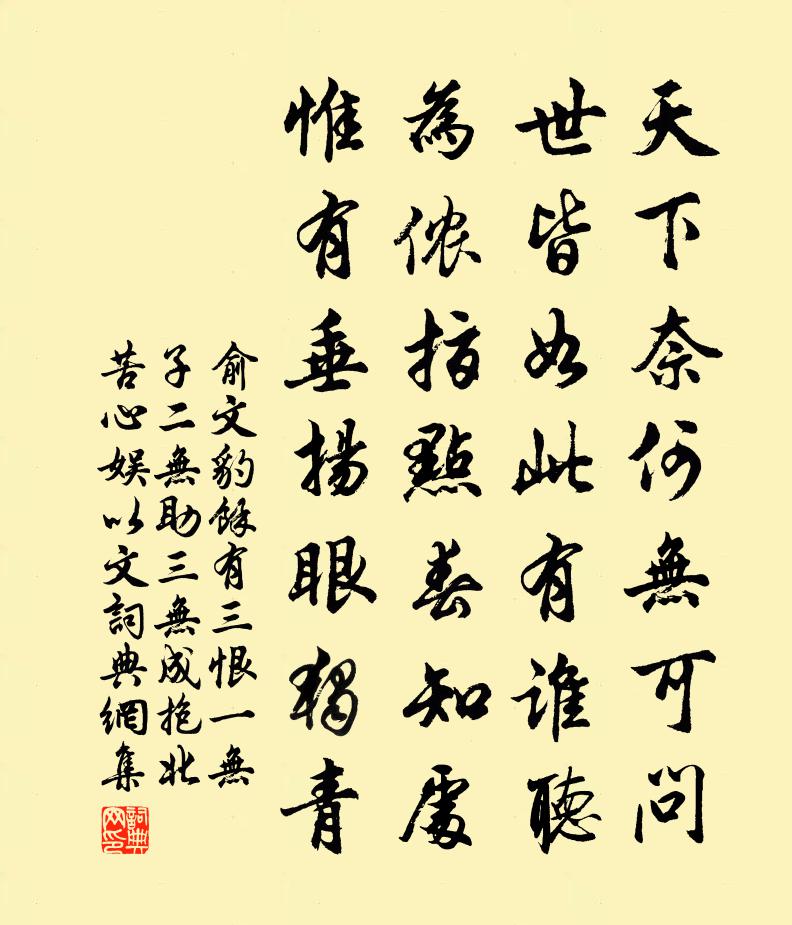 天下奈何無可問
世皆如此有誰聽
為儂指點春知處
惟有垂揚眼獨青
俞文豹餘有三恨一無
子二無助三無成抱此
苦心娱以文詞典網集
詞典网印